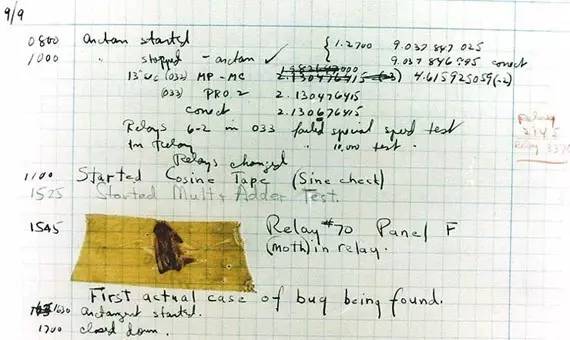 9/9
0800 arctan started { 1.2700 9.037 847 025
1000 " stopped - arctan ✓ 9.037 846 995 correct
13"uc (032) MP-MC 2.130476415 (-3) 4.615925059(-2)
(033) PRO 2 2.130476415
correct 2.130676415
Relays 6-2 in 033 failed special speed test
In Relay " 10,000 test.
Relay
2145
Relay 3370
Relays changed
1100 Started Cosine Tape (Sine check)
1525 Started Mult+Adder Test.
1545 Relay #70 Panel F
(Moth) in relay.
First actual case of bug being found.
1630 arctangent started.
1700 closed down.